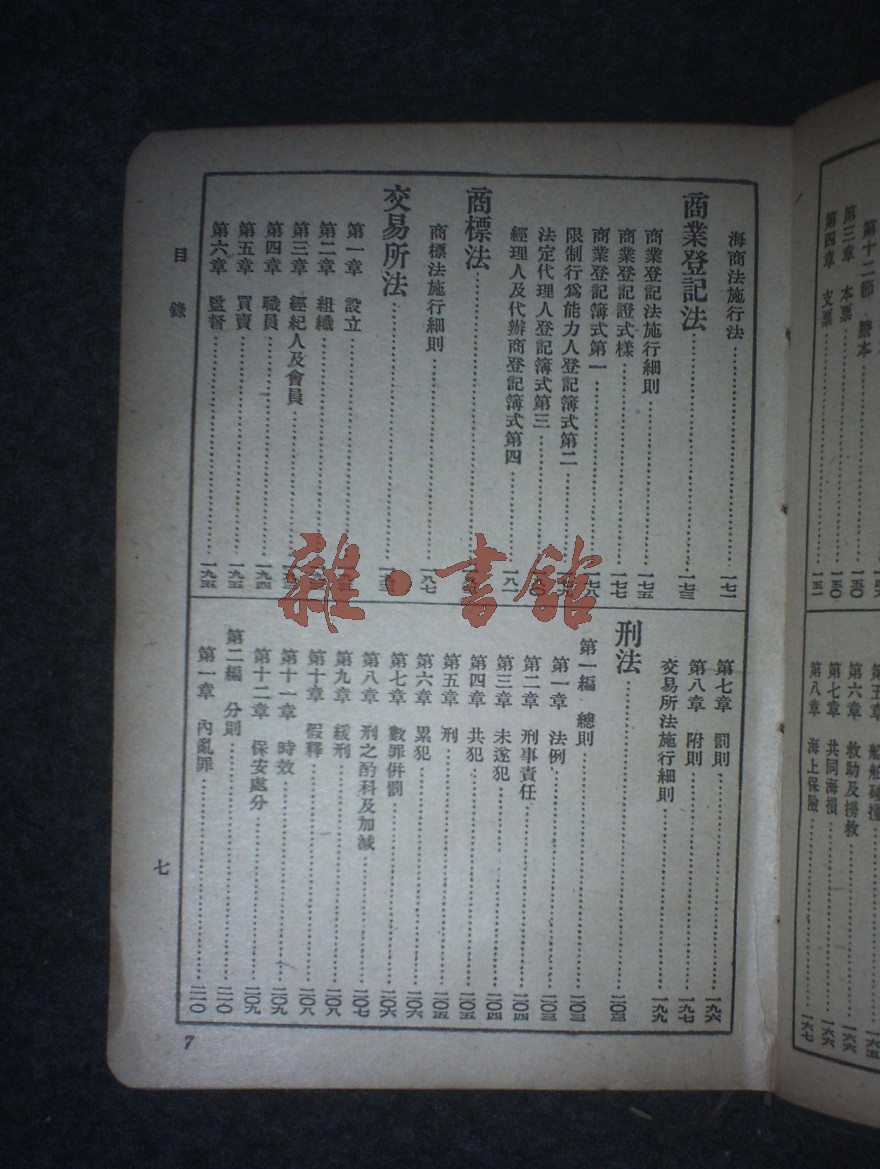 第十二節 謄本
第三章 本票 一五〇
第四章 支票 一五一
第五章 船舶碰撞 一六五
第六章 救助及撈救 一六六
第七章 共同海損 一六六
第八章 海上保險 一六七
海商法施行法 一七二
商業登記法 一七三
商業登記法施行細則 一七五
商業登記證式樣 一七七
商業登記簿式第一 一七八
限制行爲能力人登記簿式第二
法定代理人登記簿式第三
經理人及代辦商登記簿式第四 一八一
商標法
商標法施行細則 一八七
交易所法
第一章 設立
第二章 組織
第三章 經紀人及會員
第四章 職員 一九四
第五章 買賣 一九五
第六章 監督 一九五
第七章 罰則 一九六
第八章 附則 一九七
交易所法施行細則 一九九
刑法 二〇三
第一編 總則 二〇三
第一章 法例 二〇三
第二章 刑事責任 二〇四
第三章 未遂犯 二〇四
第四章 共犯 二〇五
第五章 刑 二〇五
第六章 累犯 二〇六
第七章 數罪併罰 二〇六
第八章 刑之酌科及加減 二〇七
第九章 緩刑 二〇八
第十章 假釋 二〇八
第十一章 時效 二〇九
第十二章 保安處分 二〇九
第二編 分則 二一〇
第一章 內亂罪 二一〇
目錄
七
7
雜·書館